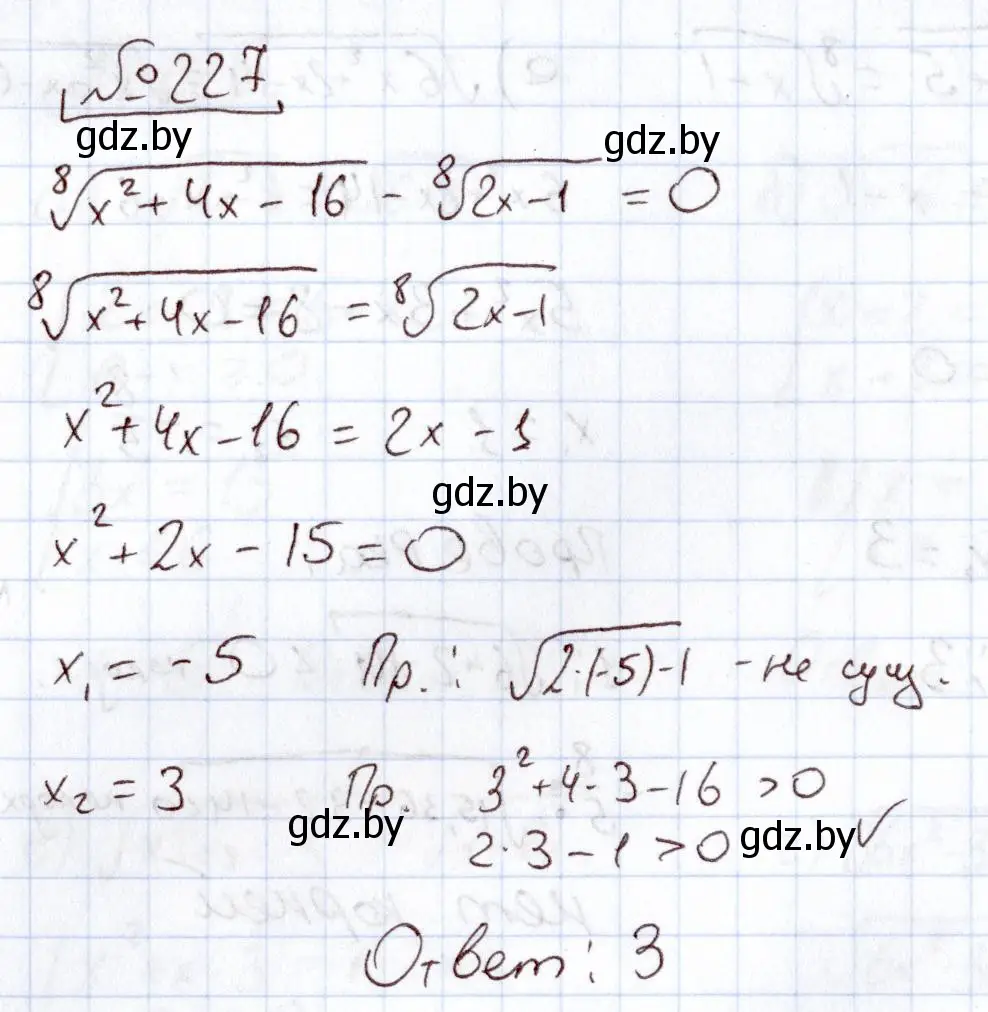 №227
gdz.by
⁸√(x² + 4x - 16) - ⁸√(2x-1) = 0
gdz.by
⁸√(x²+4x-16) = ⁸√(2x-1)
x²+4x-16 = 2x - 1
gdz.by
x² + 2x - 15 = 0
x₁ = -5 Пр.: √(2·(-5)-1) - не сущ.
x₂ = 3 Пр. 3²+4·3-16 >0
gdz.by
2·3-1 >0 ✓
gdz.by
Ответ: 3